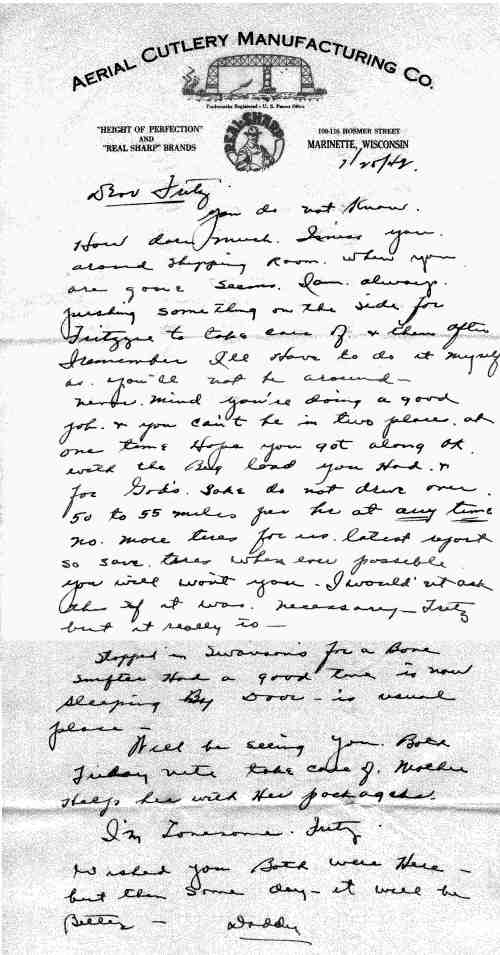 AERIAL CUTLERY MANUFACTURING CO.
Trademarks Registered - U. S. Patent Office
"HEIGHT OF PERFECTION"
AND
"REAL SHARP" BRANDS
REAL-SHARP
100-116 HOSMER STREET
MARINETTE, WISCONSIN
1/20/42.
Dear Fritz
you do not Know.
How darn much. I miss you.
around shipping Room. when you
are gone seems. I am always.
pushing something on the side for
Fritzie to take care of. & then after
I remember I'll Have to do it myself
as. you'll not be around -
never. mind you're doing a good
job. & you can't be in two place. at
one time Hope you got along OK.
with the Big load you Had. &
for God's. Sake do not drive over.
50 to 55 miles per hr at any time
no. more tires for us. latest report
so save. tires when ever possible
you will won't you. I would'nt ask
this if it was. necessary - Fritz
but it really is -
Stopped in Swanson's for a Bone
Snifter Had a good time is now
sleeping By Door - is usual
place -
Will be seeing you. Both
Friday nite take care of. Mother
Help her with Her packages.
I'm Lonesome. Fritz.
Wished you Both were Here -
but then some day - it will be
Better - Daddy